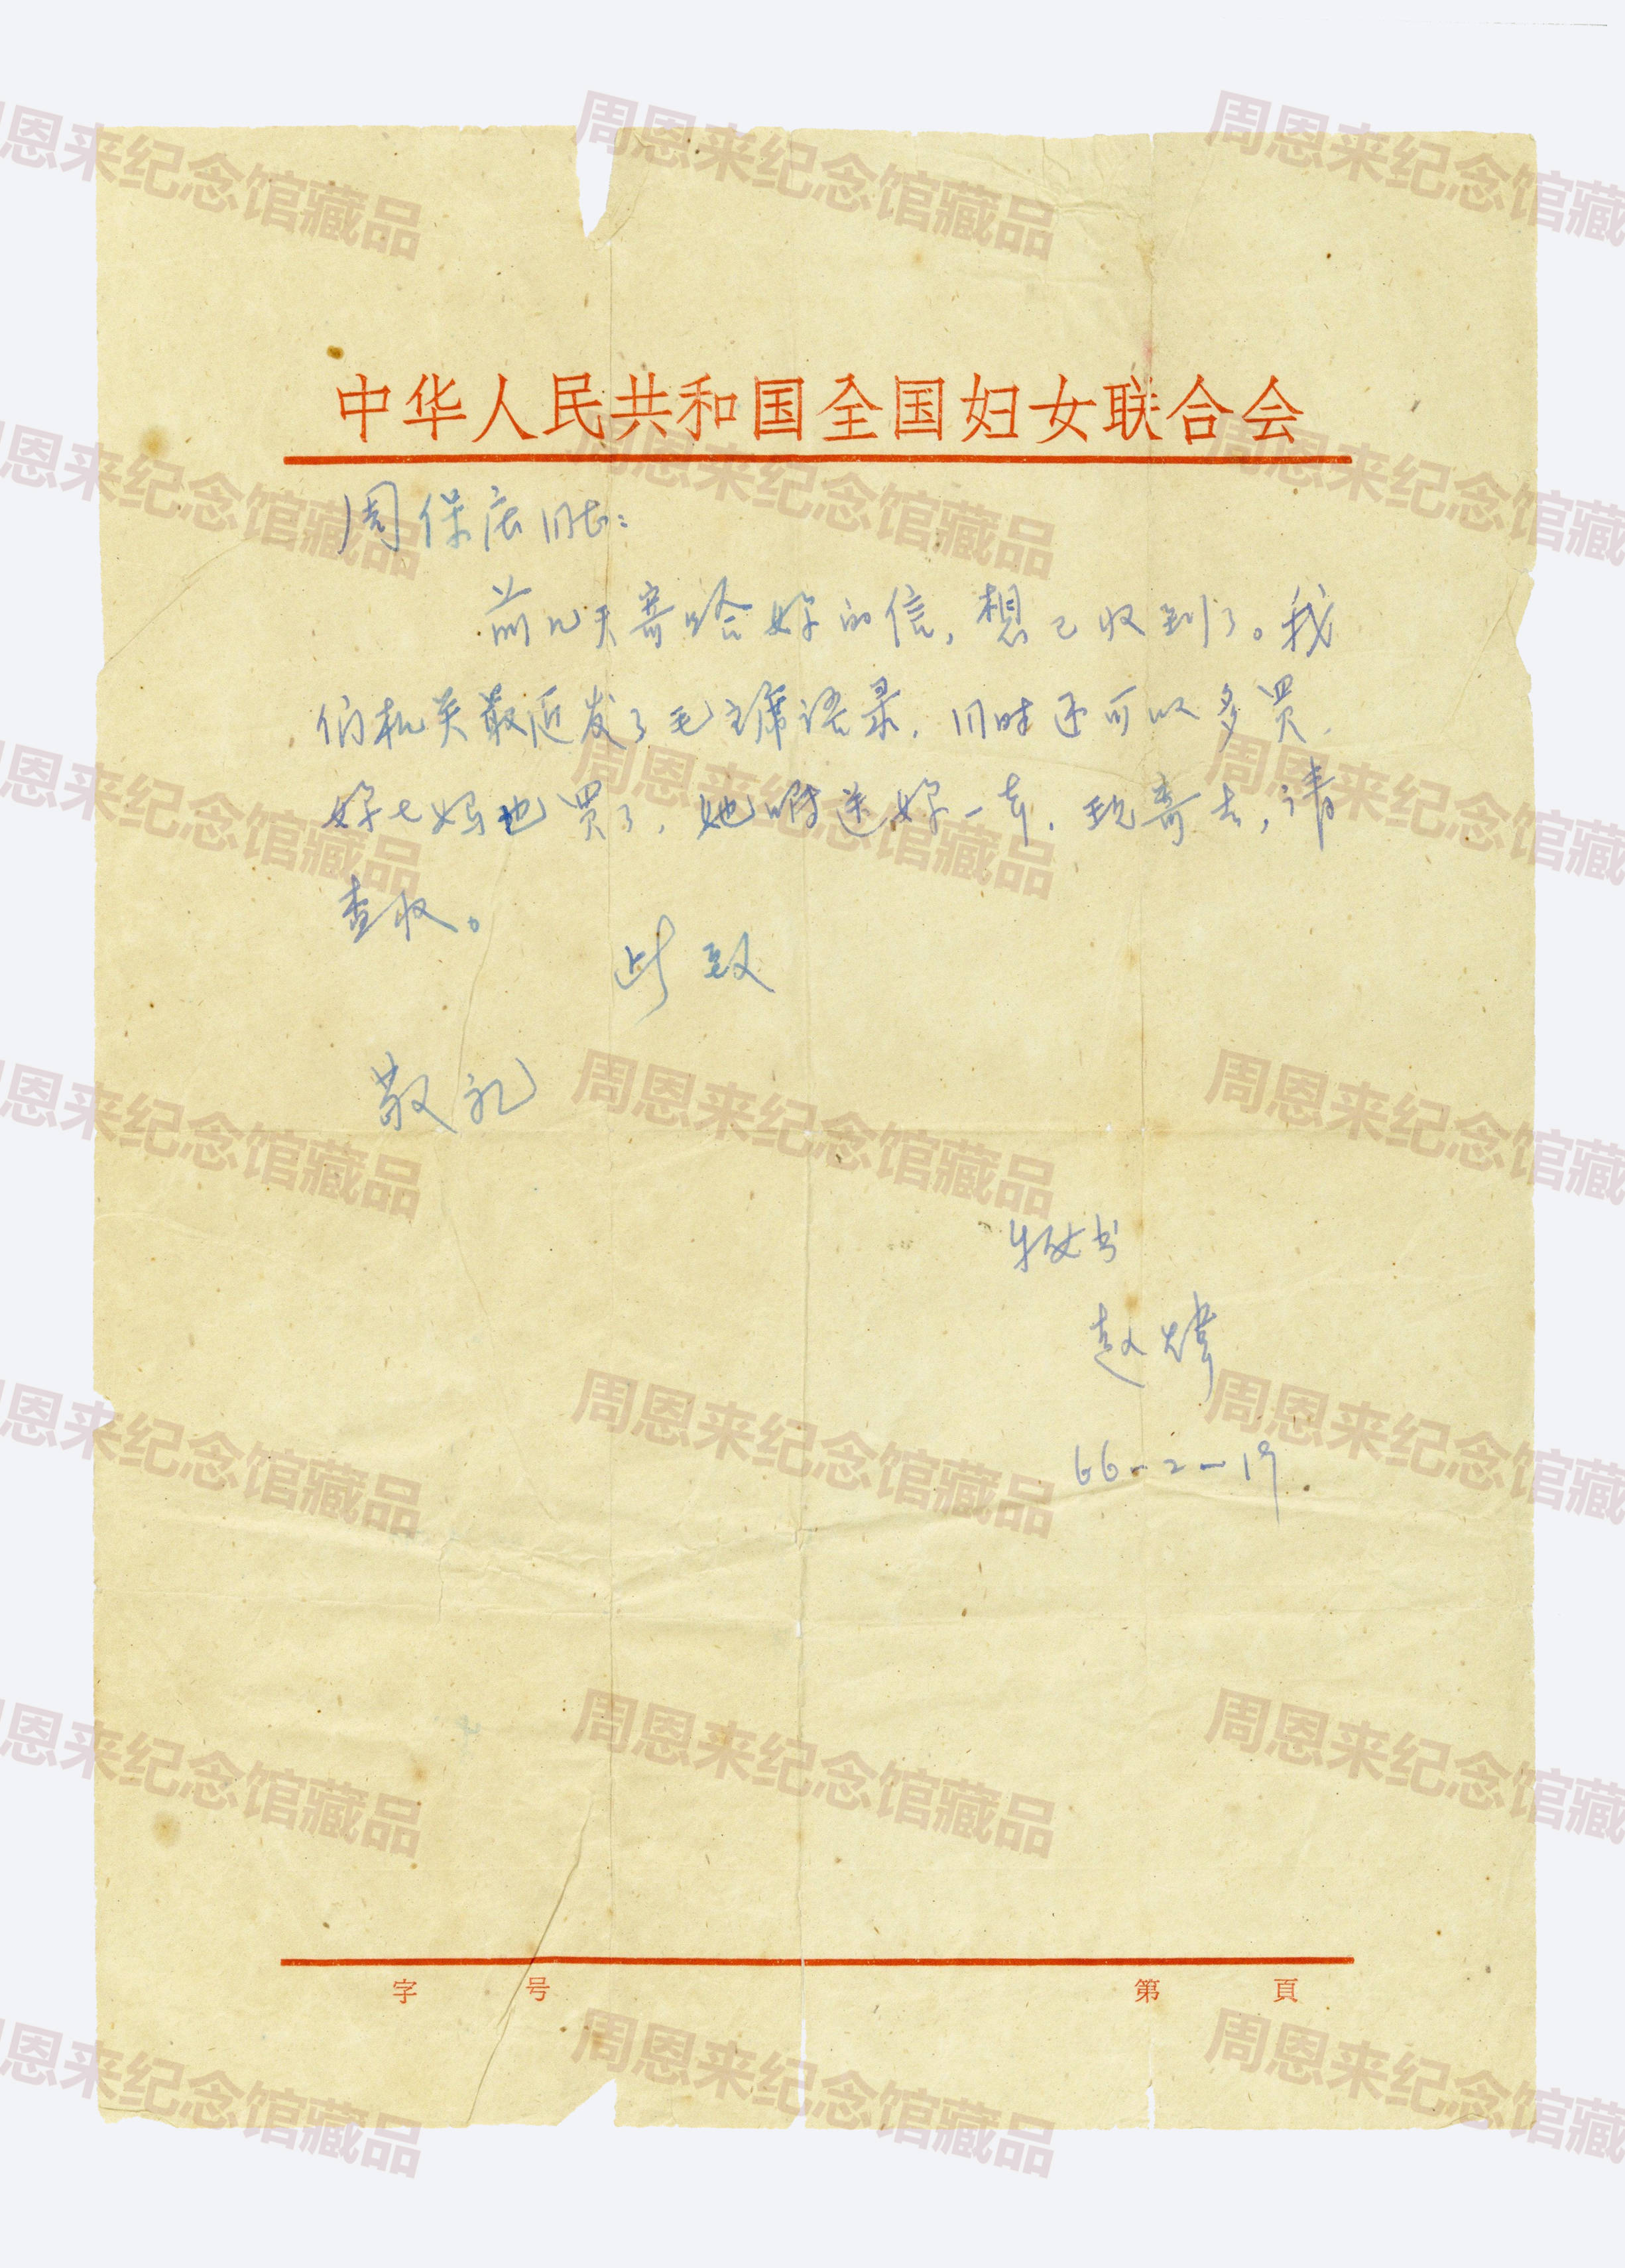 中华人民共和国全国妇女联合会
周保庄同志：
前几天寄给妳的信，想已收到了。我
们机关最近发了毛主席语录，同时还可以多買，
妳七妈也買了，她嘱送妳一本，现寄去，请
查收。
此致
敬礼
赵炜
66-2-19
字 号 第 頁
周恩来纪念馆藏品